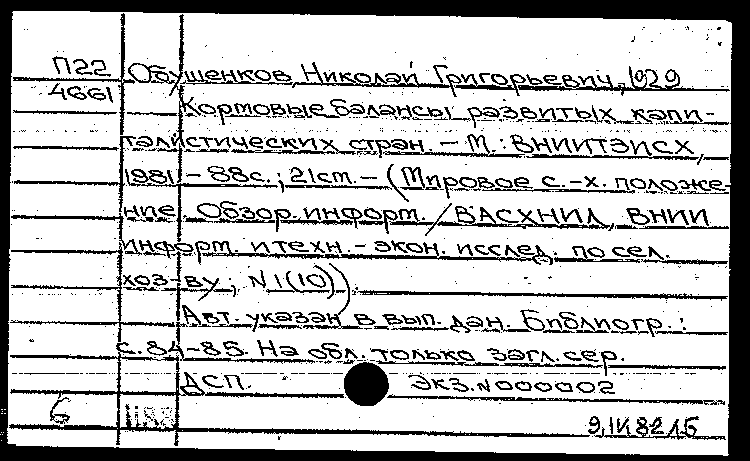 П22 Обушенков, Николай Григорьевич, 1929
4661 Кормовые балансы развитых капи-
талистических стран. – М.: ВНИИТЭИСХ,
1981 – 88с.; 21см. – (Мировое с.-х. положе-
ние. Обзор. информ. / ВАСХНИЛ, ВНИИ
информ. и техн.-экон. исслед. по сел.
хоз-ву; N 1(10)).
Авт. указан в вып. дан. Библиогр.:
с. 84-85. На обл. только загл. сер.
ДСП. экз. N 000002
6